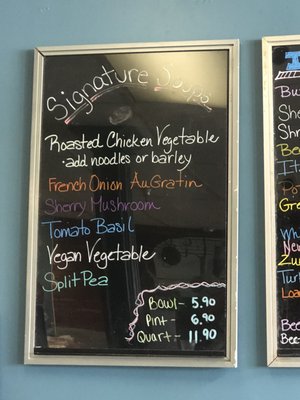 Signature Soups
Roasted Chicken Vegetable
• add noodles or barley
French Onion AuGratin
Sherry Mushroom
Tomato Basil
Vegan Vegetable
Split Pea
Bowl - 5.90
Pint - 6.90
Quart - 11.90